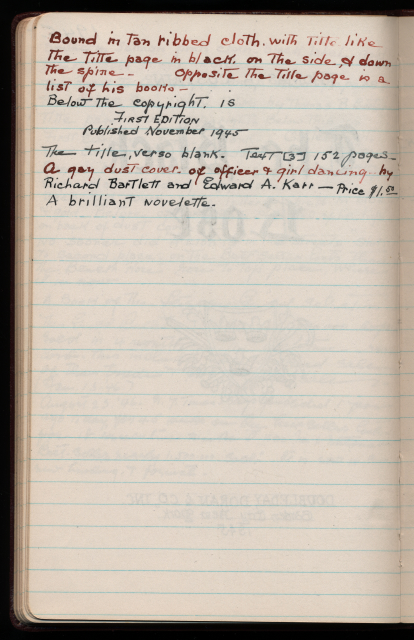 Bound in Tan ribbed cloth. with Title like
The Title page in black. on The side, & down
The spine -- Opposite The Title page is a
list of his books —
Below The copyright. is
FIRST EDITION
Published November 1945
The title, verso blank. Text [3] 152 pages —
A gay dust cover. of officer & girl dancing by
Richard Bartlett and Edward A. Karr — Price $1.50
A brilliant novelette.